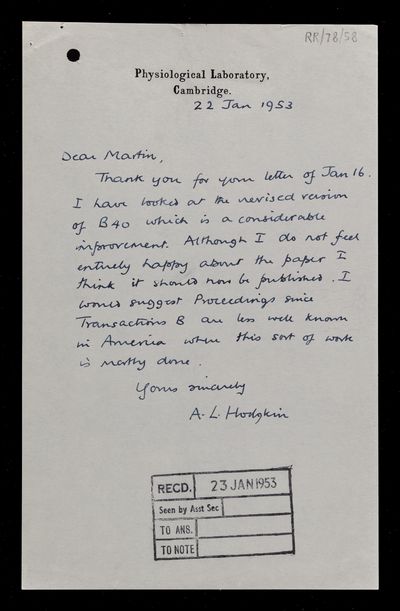 RR/78/58
Physiological Laboratory,
Cambridge.
22 Jan 1953
Dear Martin,
Thank you for your letter of Jan 16.
I have looked at the revised version
of B40 which is a considerable
improvement. Although I do not feel
entirely happy about the paper I
think it should now be published. I
would suggest Proceedings since
Transactions B are less well known
in America where this sort of work
is mostly done.
Yours sincerely
A. L. Hodgkin
RECD. 23 JAN 1953
Seen by Asst Sec
TO ANS.
TO NOTE